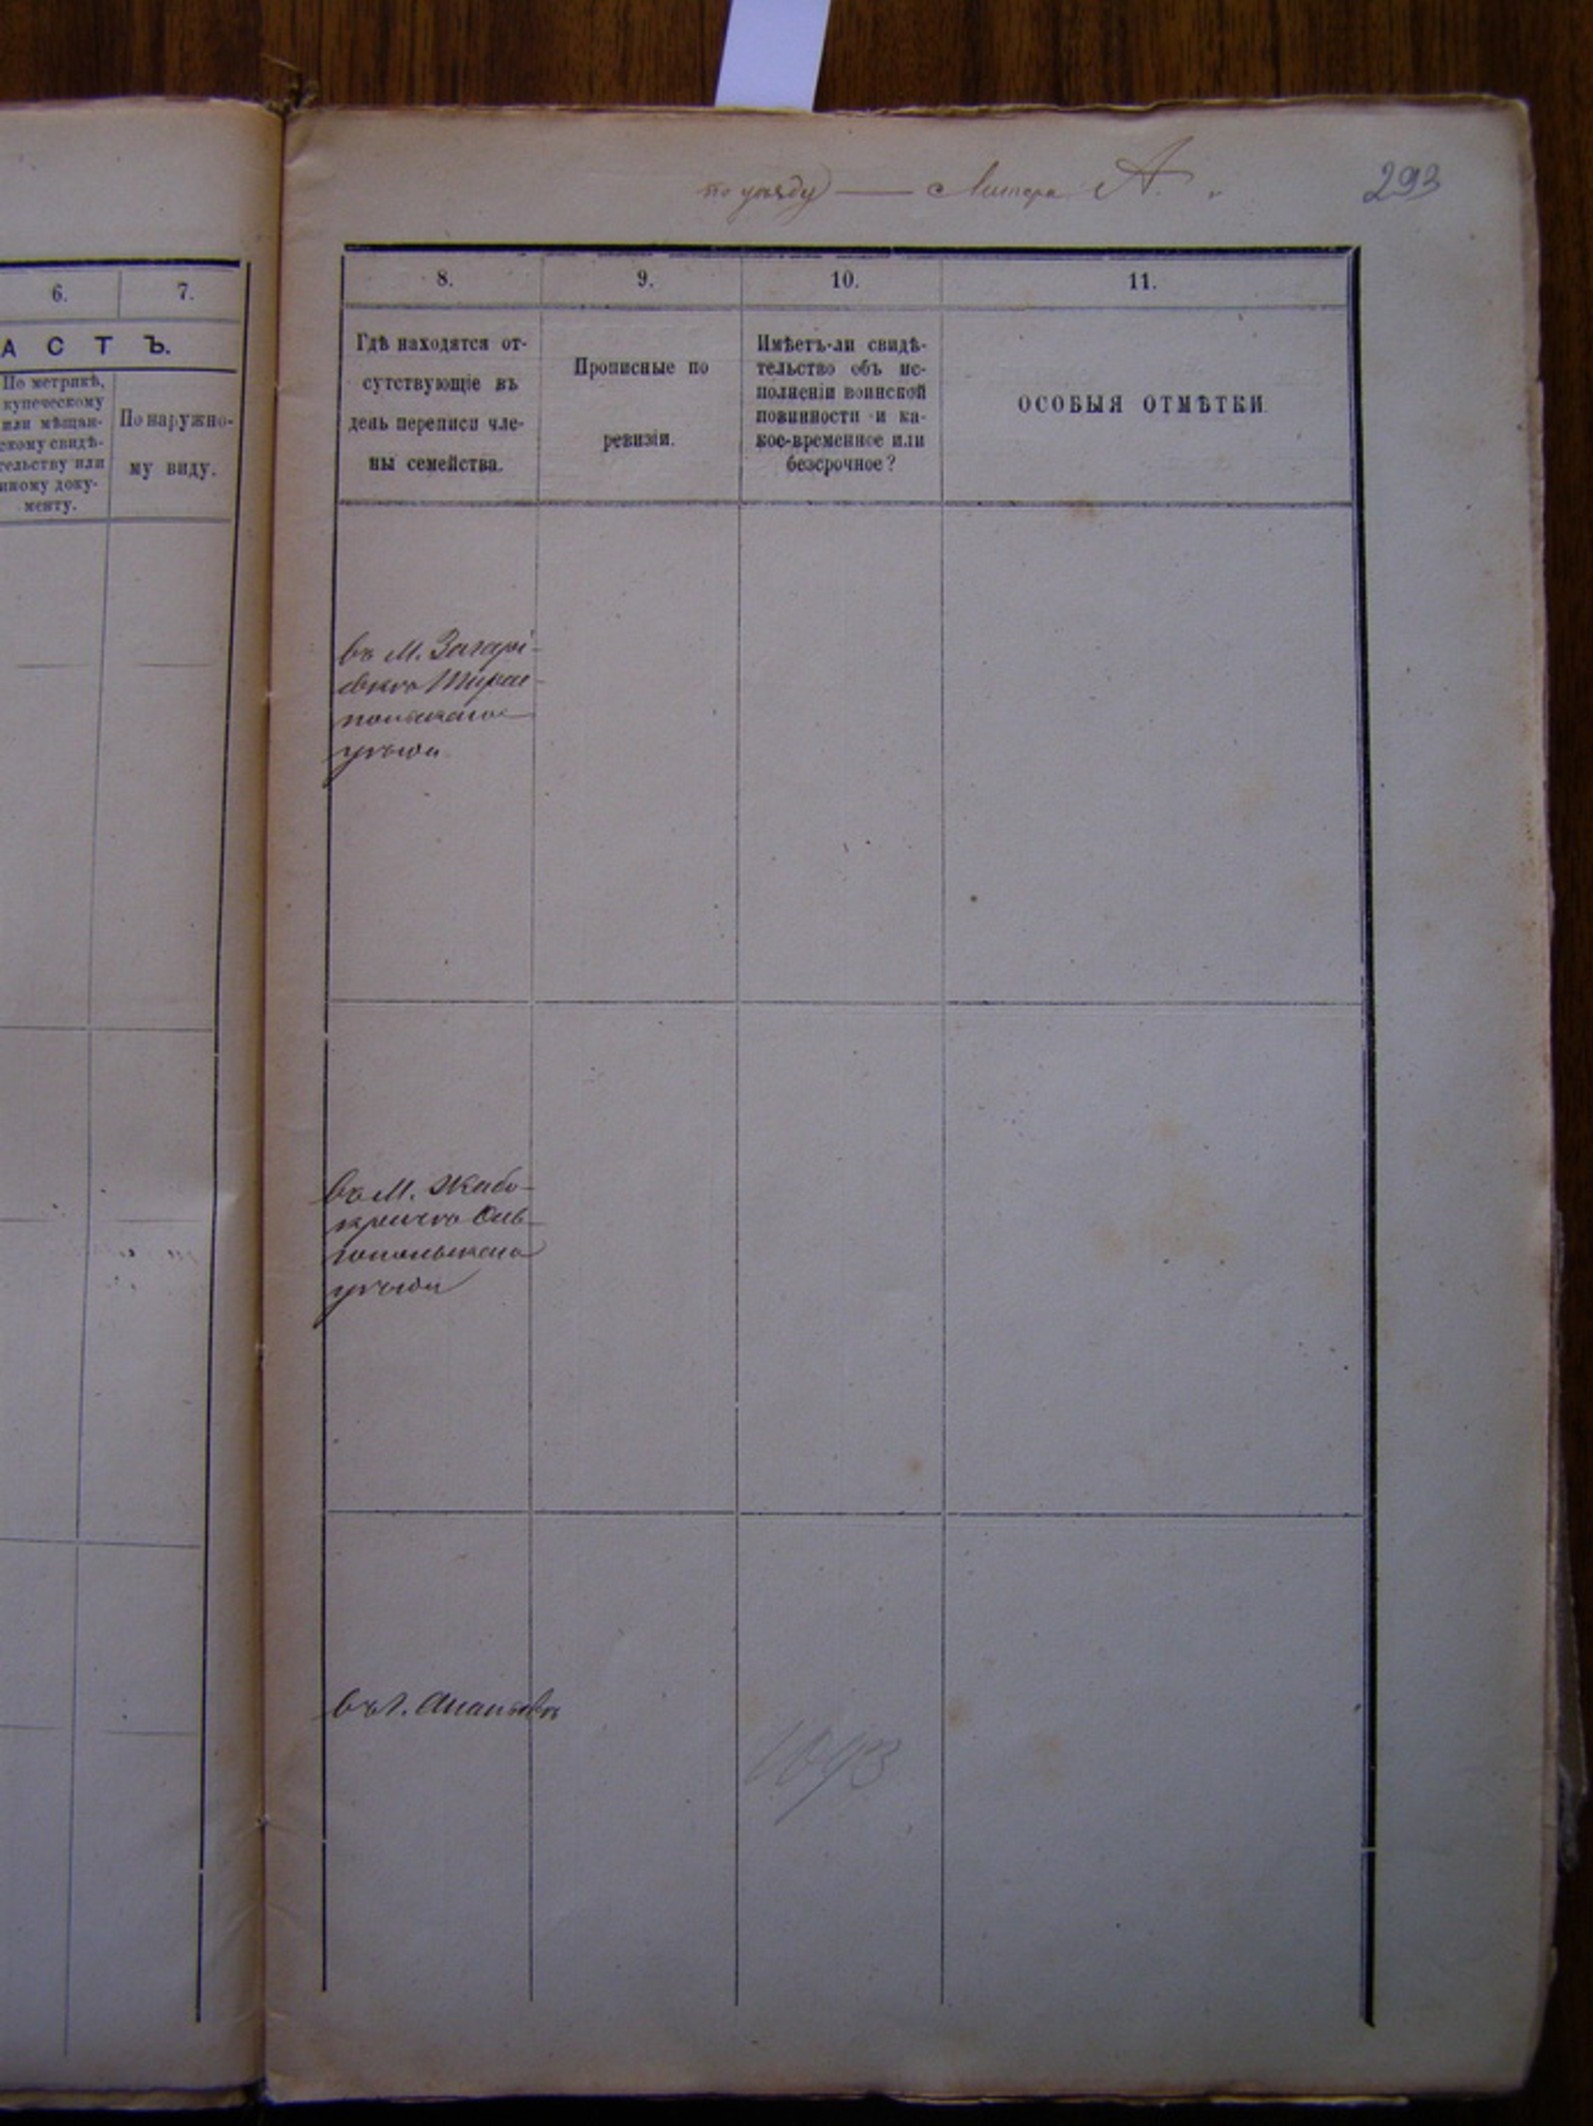 по уѣзду — Литера А.
293
6.
7.
А С Т Ъ.
По метрикѣ,
купеческому
или мѣщан-
скому свидѣ-
тельству или
иному доку-
менту.
По наружно-
му виду.
8.
9.
10.
11.
Гдѣ находятся от-
сутствующіе въ
день переписи чле-
ны семейства.
Прописные по
ревизіи.
Имѣетъ-ли свидѣ-
тельство объ ис-
полненіи воинской
повинности и ка-
кое-временное или
безсрочное?
ОСОБЫЯ ОТМѢТКИ.
въ М. Захарі-
евкѣ Тирас-
польскаго
уѣзда
въ М. Жабо-
кричкѣ Оль-
гопольскаго
уѣзда
въ г. Ананьевѣ
1093